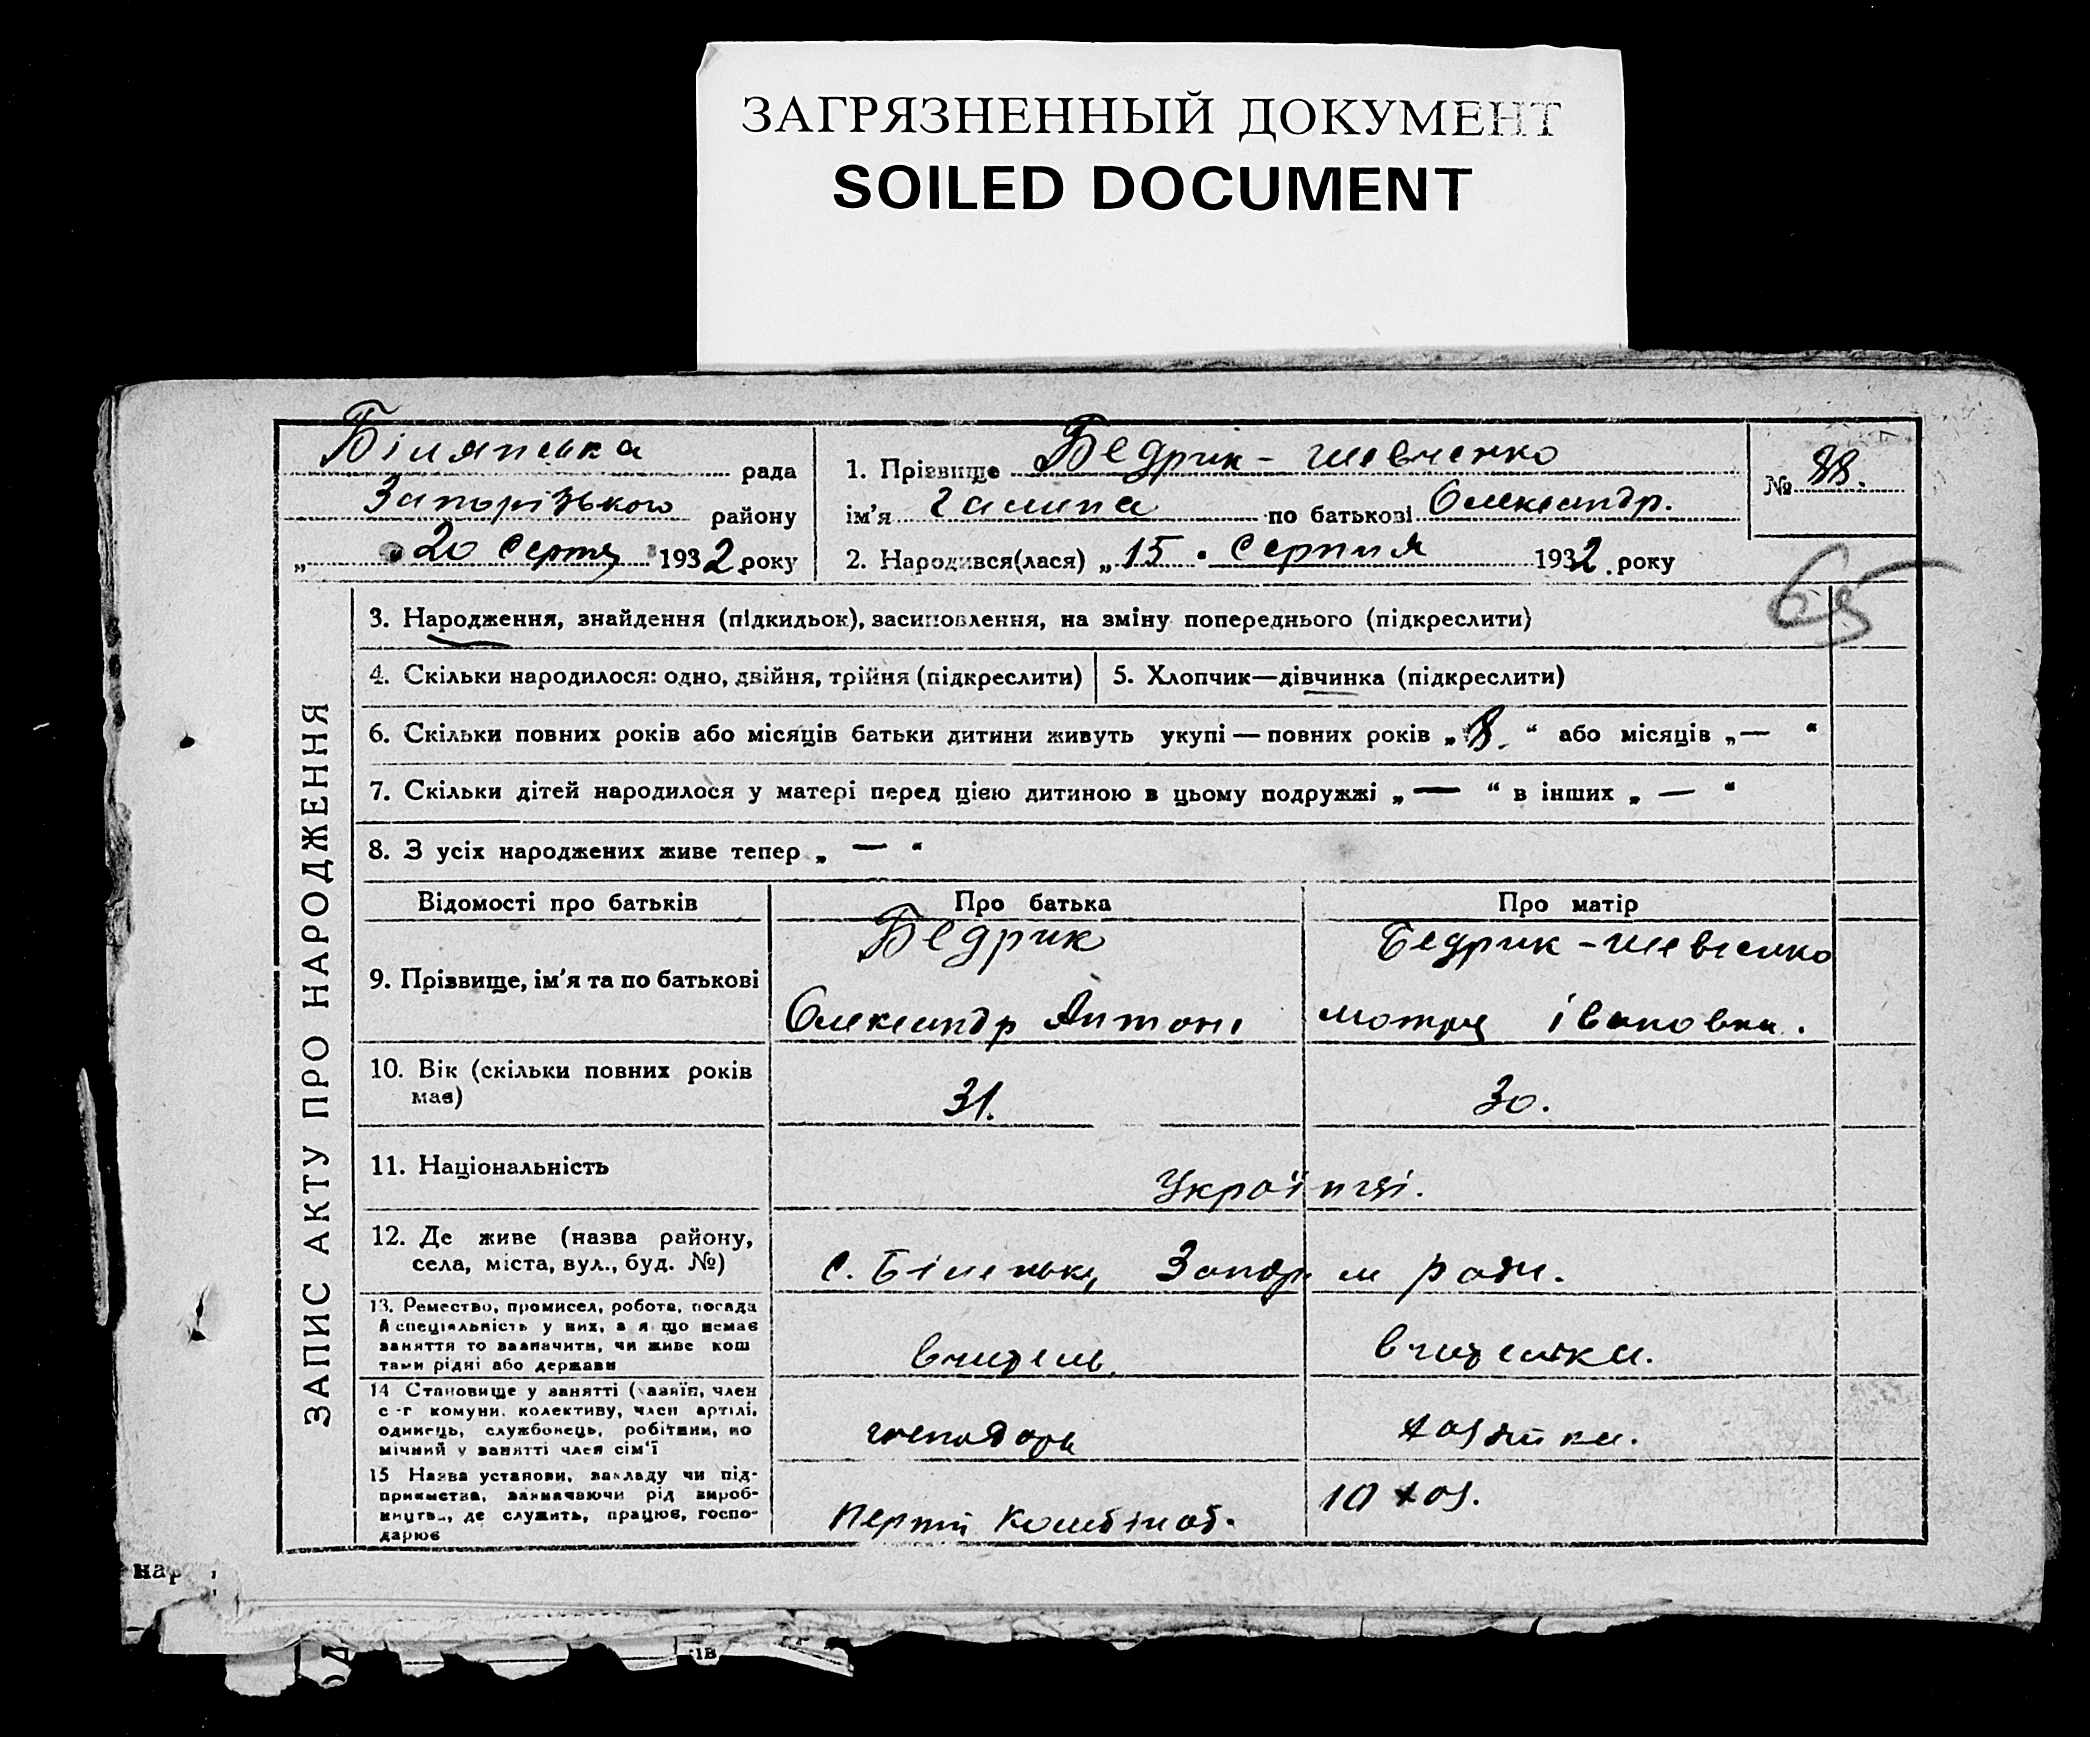 ЗАГРЯЗНЕННЫЙ ДОКУМЕНТ
SOILED DOCUMENT
Білянська рада
Запорізького району
„ 20 серпня 1932 року
1. Прізвище Бедрик - Шевченко
ім'я Галина по батькові Олександр.
2. Народився(лася) „ 15 . серпня 1932 . року
№ 88.
65
ЗАПИС АКТУ ПРО НАРОДЖЕННЯ
3. Народження, знайдення (підкидьок), засиновлення, на зміну попереднього (підкреслити)
4. Скільки народилося: одно, двійня, трійня (підкреслити)
5. Хлопчик—дівчинка (підкреслити)
6. Скільки повних років або місяців батьки дитини живуть укупі — повних років „ 8 “ або місяців „ — “
7. Скільки дітей народилося у матері перед цією дитиною в цьому подружжі „ — “ в інших „ — “
8. З усіх народжених живе тепер „ — “
Відомості про батьків
Про батька
Про матір
9. Прізвище, ім'я та по батькові
Бедрик
Олександр Антоно
Бедрик - Шевченко
Мотря Івановна.
10. Вік (скільки повних років
має)
31.
30.
11. Національність
Українці.
12. Де живе (назва району,
села, міста, вул., буд. №)
с. Біленьке, Запор. рай.
13. Ремество, промисел, робота, посада
й спеціяльність у них, а я що немає
заняття то зазначити, чи живе кош
тами рідні або держави
вчитель
вчителька.
14 Становище у занятті (хазяїн, член
с-г комуни. колективу, член артілі,
одинець, службовець, робітник, по
мічний у занятті член сім'ї
господарь
хозяйка.
15 Назва установи, закладу чи під-
приємства, зазначаючи рід вироб-
ництва, де служить, працює, госпо-
дарює
Комбінат.
нар
ів